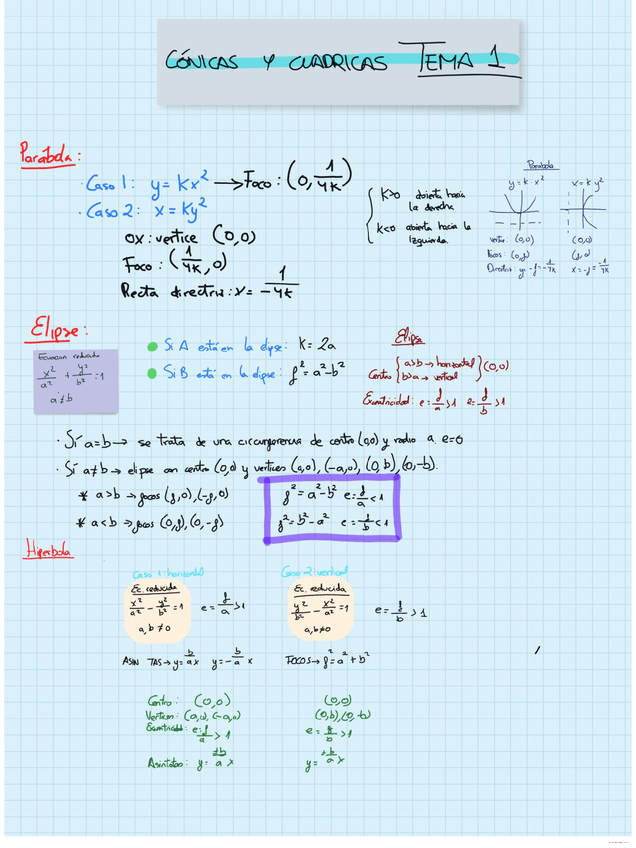 CÓNICAS Y CUADRICAS TEMA 1
Parábola:
· Caso 1: y = Kx² → Foco: (0, 1/4K)
· Caso 2: x = Ky²
OX: vertice (0,0)
Foco: (1/4K, 0)
Recta directriz: x = 1/-4K
K>0 abierta hacia
la derecha
K<0 abierta hacia la
Izquierda
Parabola
y = k·x² x = k y²
Vertice: (0,0) (0,0)
Focos: (0,f) (f,0)
Directriz: y = -f = -1/4K x = -f = -1/4K
Elipse:
Ecuacion reducida
x²/a² + y²/b² = 1
a ≠ b
Si A está en la elipse: K = 2a
Si B está en la elipse: f² = a² - b²
Elipse
Centro { a>b → horizontal } (0,0)
b>a → vertical
Excentricidad: e = f/a > 1 e = f/b > 1
· Si a=b → se trata de una circunferencia de centro (0,0) y radio a. e=0
· Si a≠b → elipse con centro (0,0) y vertices (a,0), (-a,0), (0,b), (0,-b).
* a>b → focos (f,0), (-f,0)
* a<b → focos (0,f), (0,-f)
f² = a² - b² e = f/a < 1
f² = b² - a² e = f/b < 1
Hiperbola
Caso 1: horizontal Caso 2: vertical
Ec. reducida
x²/a² - y²/b² = 1
a, b ≠ 0
e = f/a > 1
Ec. reducida
y²/b² - x²/a² = 1
a, b ≠ 0
e = f/b > 1
ASIN TAS → y = b/a x y = -b/a x FOCOS → f² = a² + b²
Centro: (0,0) (0,0)
Vertices: (a,0), (-a,0) (0,b), (0,-b)
Excentricidad: e = f/a > 1 e = f/b > 1
Asintotas: y = ±b/a x y = ±b/a x